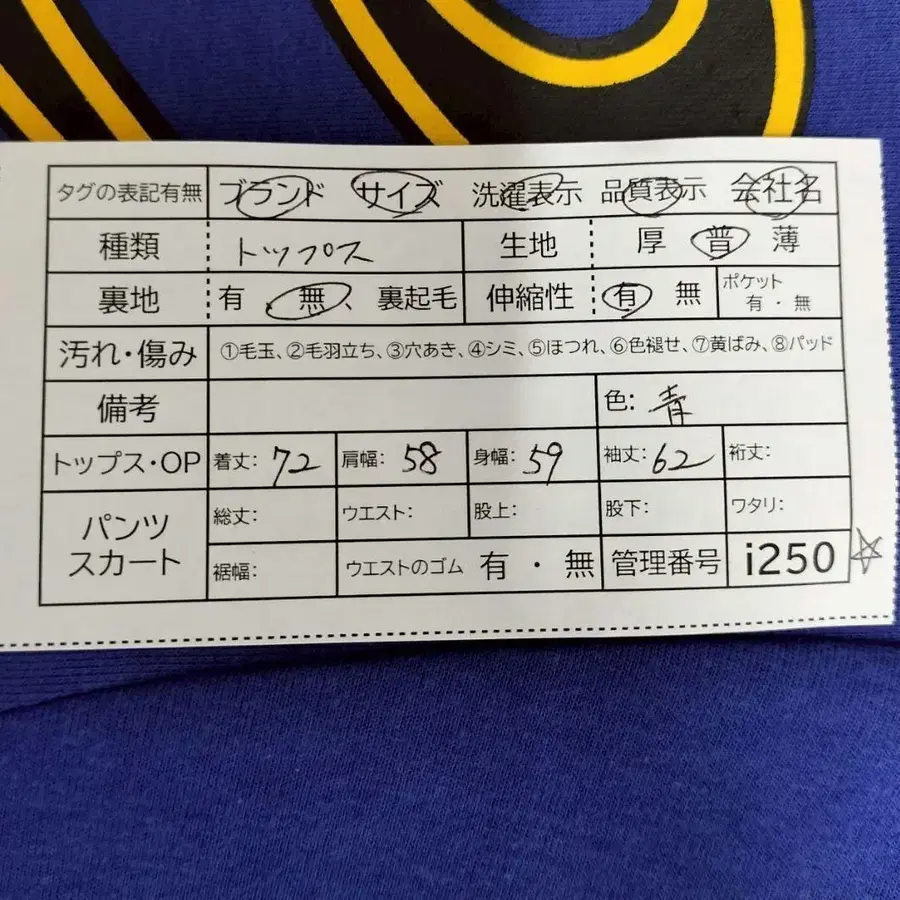 タグの表記有無 ブランド サイズ 洗濯表示 品質表示 会社名
種類 トップス 生地 厚 普 薄
裏地 有 、無、裏起毛 伸縮性 有 無 ポケット 有・無
汚れ・傷み ①毛玉、②毛羽立ち、③穴あき、④シミ、⑤ほつれ、⑥色褪せ、⑦黄ばみ、⑧パッド
備考 色: 青
トップス・OP 着丈: 72 肩幅: 58 身幅: 59 袖丈: 62 裄丈:
パンツ スカート 総丈: ウエスト: 股上: 股下: ワタリ:
裾幅: ウエストのゴム 有・無 管理番号 i250